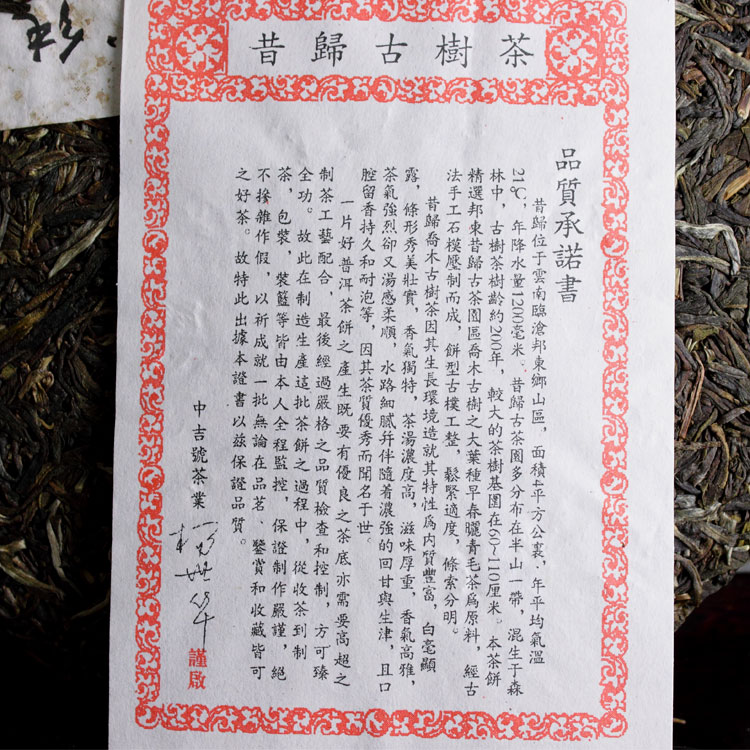 昔歸古樹茶
品質承諾書
昔歸位于雲南臨滄邦東鄉山區，面積4平方公裏、年平均氣溫
21℃，年降水量1200毫米。昔歸古茶園多分布在半山一帶，混生于森
林中，古樹茶樹齡約200年，較大的茶樹基圍在60~110厘米。本茶餅
精選邦東昔歸古茶園區喬木古樹之大葉種早春曬青毛茶爲原料，經古
法手工石模壓制而成，餅型古樸工整，鬆緊適度，條索分明。
昔歸喬木古樹茶因其生長環境造就其特性爲内質豐富，白毫顯
露，條形秀美壯實，香氣獨特，茶湯濃度高，滋味厚重，香氣高雅，
茶氣強烈卻又湯感柔順，水路細膩并伴隨着濃強的回甘與生津，且口
腔留香持久和耐泡等，因其茶質優秀而聞名于世。
一片好普洱茶餅之產生既要有優良之茶底亦需要高超之
制茶工藝配合，最後經過嚴格之品質檢查和控制，方可臻
全功。故此在制造生產這批茶餅之過程中，從收茶到制
茶，包裝，裝籃等皆由本人全程監控，保證制作嚴謹，絕
不摻雜作假，以祈成就一批無論在品茗、鑒賞和收藏皆可
之好茶。故特此出據本證書以兹保證品質。
中吉號茶業
謹啟